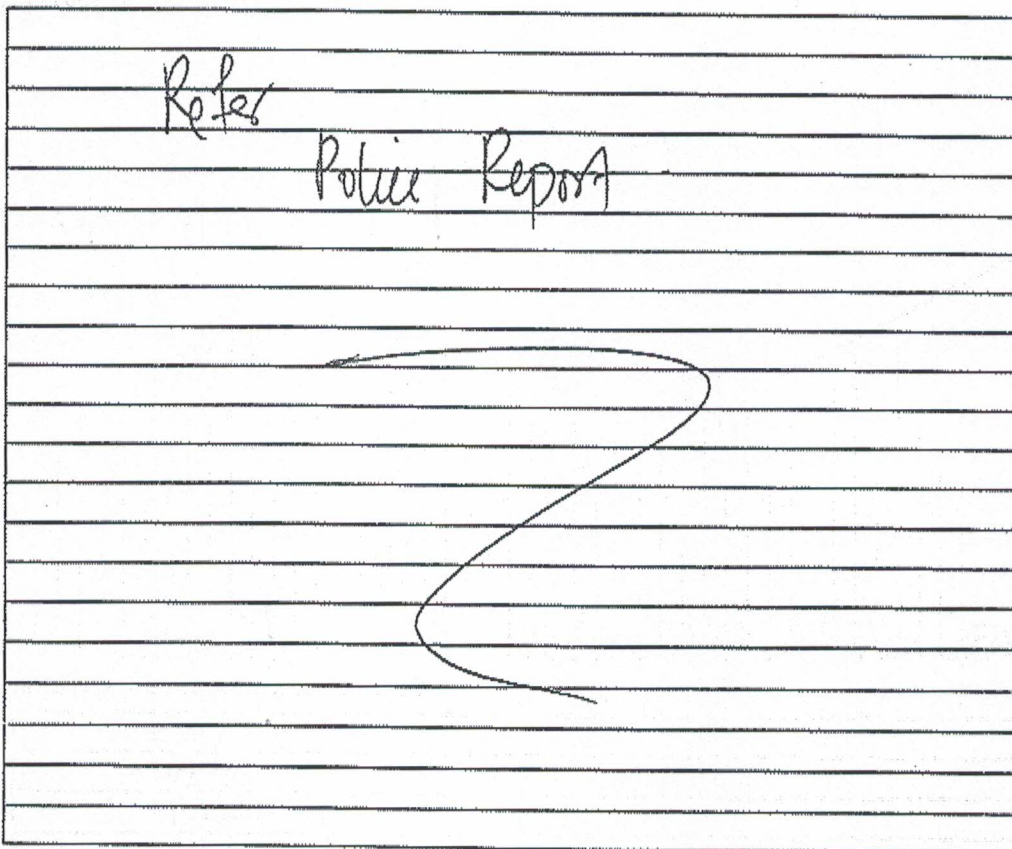 Refer
Police Report